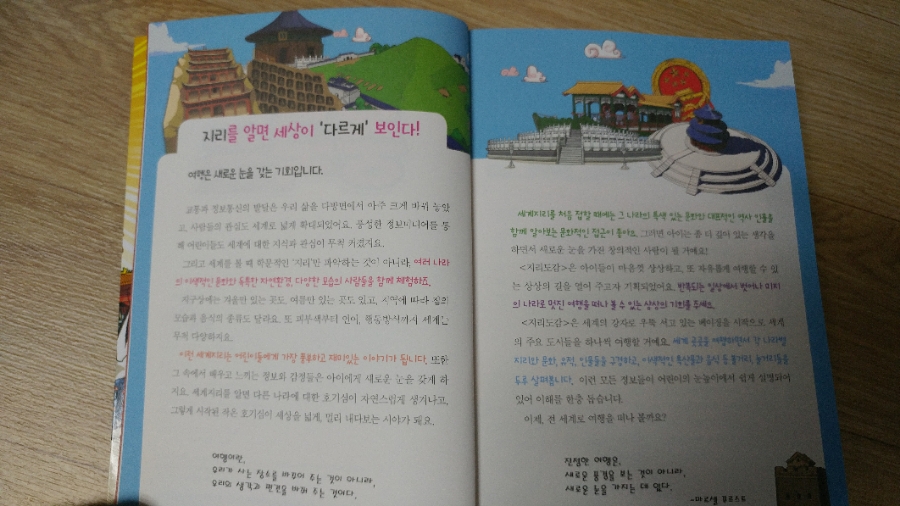 지리를 알면 세상이 '다르게' 보인다!
여행은 새로운 눈을 갖는 기회입니다.
교통과 정보통신의 발달은 우리 삶을 다방면에서 아주 크게 바꿔 놓았
고, 사람들의 관심도 세계로 넓게 확대되었어요. 풍성한 정보미디어를 통
해 어린이들도 세계에 대한 지식과 관심이 무척 커졌지요.
그리고 세계를 볼 때 학문적인 '지리'만 파악하는 것이 아니라, 여러 나라
의 이색적인 문화와 독특한 자연환경, 다양한 모습의 사람들을 함께 체험하죠.
지구상에는 겨울만 있는 곳도, 여름만 있는 곳도 있고, 지역에 따라 집의
모습과 음식의 종류도 달라요. 또 피부색부터 언어, 행동방식까지 세계는
무척 다양하지요.
이런 세계지리는 어린이들에게 가장 풍부하고 재미있는 이야기가 됩니다. 또한
그 속에서 배우고 느끼는 정보와 감정들은 아이에게 새로운 눈을 갖게 하
지요. 세계지리를 알면 다른 나라에 대한 호기심이 자연스럽게 생겨나고,
그렇게 시작된 작은 호기심이 세상을 넓게, 멀리 내다보는 시야가 돼요.
여행이란,
우리가 사는 장소를 바꿔 주는 것이 아니라,
우리의 생각과 편견을 바꿔 주는 것이다.
세계지리를 처음 접할 때에는 그 나라의 특색 있는 문화와 대표적인 역사 인물을
함께 알아보는 문화적인 접근이 좋아요. 그러면 아이는 좀 더 깊이 있는 생각을
하면서 새로운 눈을 가진 창의적인 사람이 될 거예요!
<지리도감>은 아이들이 마음껏 상상하고, 또 자유롭게 여행할 수 있
는 상상의 길을 열어 주고자 기획되었어요. 반복되는 일상에서 벗어나 미지
의 나라로 멋진 여행을 떠나 볼 수 있는 상상의 기회를 주세요.
<지리도감>은 세계의 강자로 우뚝 서고 있는 베이징을 시작으로 세계
의 주요 도시들을 하나씩 여행할 거예요. 세계 곳곳을 여행하면서 각 나라별
지리와 문화, 유적, 인물들을 구경하고, 이색적인 특산물과 음식 등 볼거리, 놀거리들을
두루 살펴봅니다. 이런 모든 정보들이 어린이의 눈높이에서 쉽게 설명되어
있어 이해를 한층 돕습니다.
이제, 전 세계로 여행을 떠나 볼까요?
진정한 여행은,
새로운 풍경을 보는 것이 아니라,
새로운 눈을 가지는 데 있다.
-마르셀 프루스트